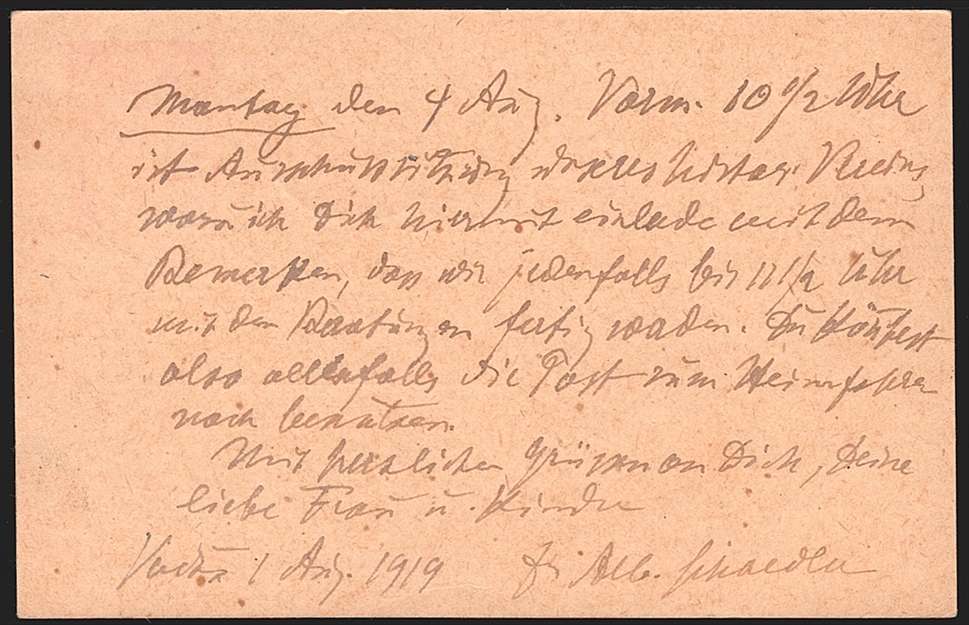 Montag den 4 Aug. Vorm. 10 1/2 Uhr
ist Ausschußsitzung unseres histor. Vereins,
wozu ich Dich hiermit einlade mit dem
Bemerken, dass wir jedenfalls bis 11 1/2 Uhr
mit den Beratungen fertig werden. Du könntest
also allenfalls die Post zum Heimfahren
noch benutzen.
Mit herzlichen Grüssen an Dich, Deine
liebe Frau u. Kinder
Vaduz 1 Aug. 1919 Dr Alb. Schaedler